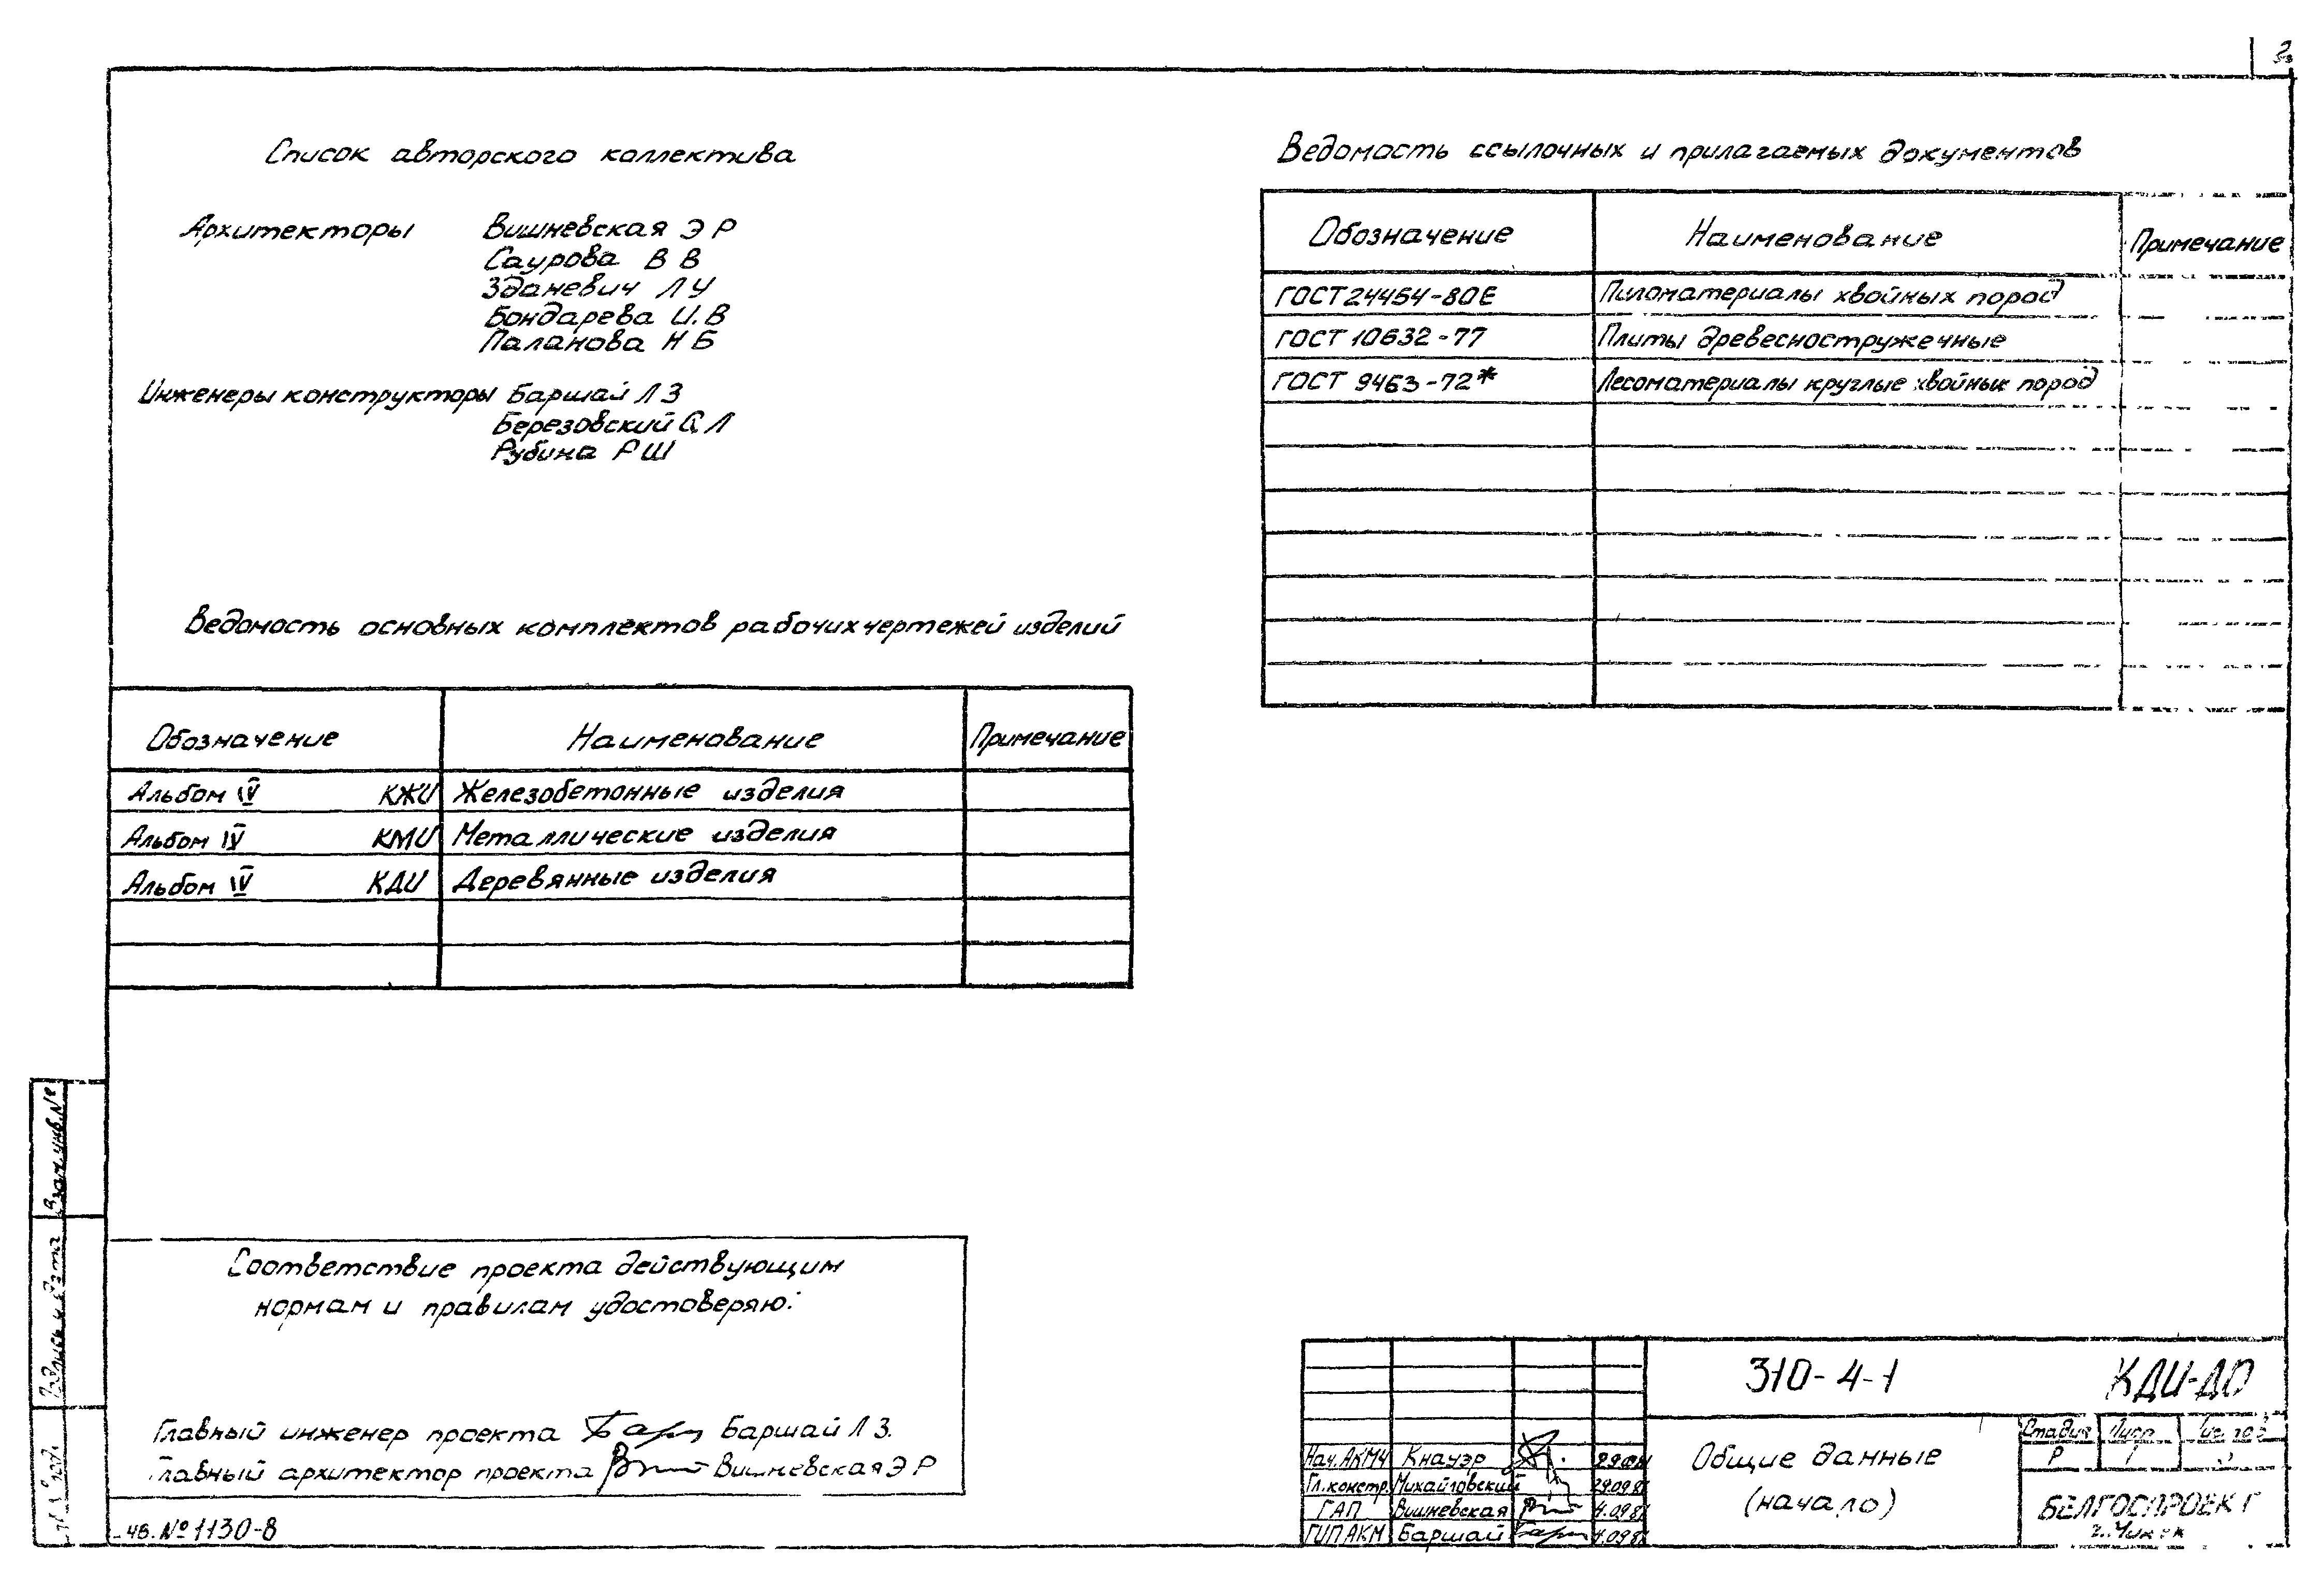 Список авторского коллектива
Архитекторы Вишневская Э Р
Саурова В В
Зданевич Л У
Бондарева И.В
Паланова Н Б
Инженеры конструкторы Баршай Л З
Березовский С Л
Рубина Р Ш
Ведомость основных комплектов рабочих чертежей изделий
Обозначение Наименование Примечание
Альбом IV КЖИ Железобетонные изделия
Альбом IV КМИ Металлические изделия
Альбом IV КДИ Деревянные изделия
Соответствие проекта действующим
нормам и правилам удостоверяю:
Главный инженер проекта Баршай Л З.
Главный архитектор проекта Вишневская Э Р
Взам.инв.№
№ 1130-8
Ведомость ссылочных и прилагаемых документов
Обозначение Наименование Примечание
ГОСТ 24454-80Е Пиломатериалы хвойных пород
ГОСТ 10632-77 Плиты древесностружечные
ГОСТ 9463-72* Лесоматериалы круглые хвойных пород
310-4-1 КДИ-ДО
Нач.АКМЧ Кнауэр
Гл.констр. Михайловский
ГАП Вишневская
ГИПАКМ Баршай
Общие данные
(начало)
Стадия Лист
Р 1
БЕЛГОСПРОЕКТ
г.Минск